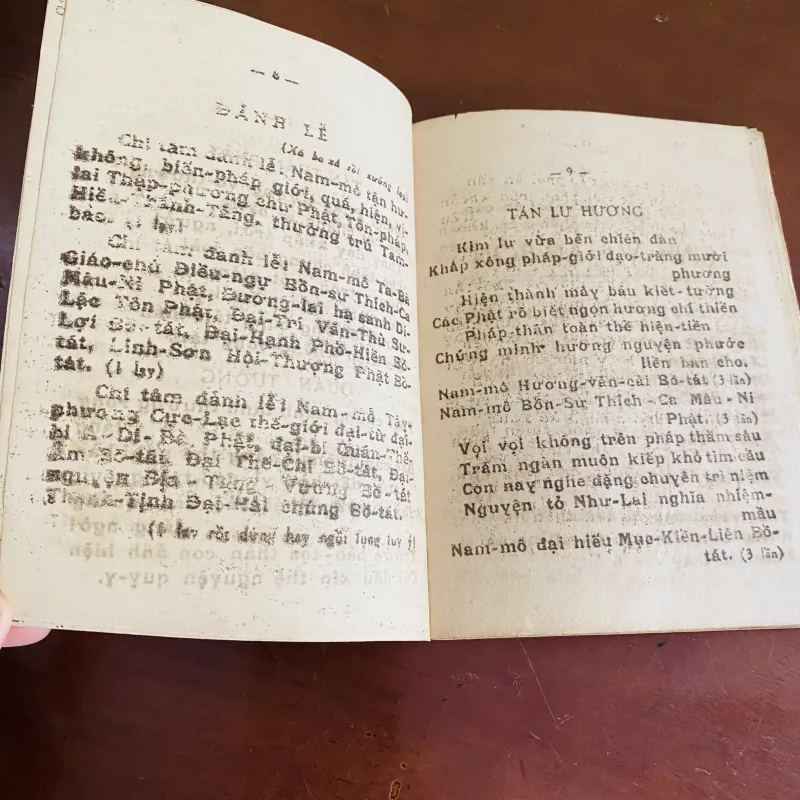 — 8 —
ĐẢNH LỄ
(Xá ba xá rồi xuống lạy)
Chí tâm đảnh lễ: Nam-mô tận hư-
không, biến-pháp giới, quá, hiện, vị-
lai Thập-phương chư Phật, Tôn-pháp,
Hiền-Thánh-Tăng, thường trú Tam-
bảo. (1 lạy)
Chí tâm đảnh lễ: Nam-mô Ta-Bà
Giáo-chủ Điều-ngự Bổn-sư Thích-Ca
Mâu-Ni Phật, Đương-lai hạ sanh Di-
Lặc Tôn Phật, Đại-Trí Văn-Thù Sư-
Lợi Bồ-tát, Đại-Hạnh Phổ-Hiền Bồ-
tát, Linh-Sơn Hội-Thượng Phật Bồ-
tát. (1 lạy)
Chí tâm đảnh lễ: Nam-mô Tây-
phương Cực-Lạc thế-giới đại-từ đại-
bi A-Di-Đà Phật, đại-bi Quán-Thế-
Âm Bồ-tát, Đại Thế-Chí Bồ-tát, Đại-
nguyện Địa-Tạng-Vương Bồ-tát
Thanh-Tịnh Đại-Hải chúng Bồ-tát.
(1 lạy rồi đứng hay ngồi tụng tùy ý)
— 9 —
TÁN LƯ HƯƠNG
Kim lư vừa bén chiên đàn
Khắp xông pháp-giới đạo-tràng mười
phương
Hiện thành mây báu kiết-tường
Các Phật rõ biết ngọn hương chí thiền
Pháp-thân toàn thể hiện-tiền
Chứng minh hương nguyện phước
liền ban cho.
Nam-mô Hương-vân-cái Bồ-tát (3 lần)
Nam-mô Bổn-Sư Thích-Ca Mâu-Ni
Phật. (3 lần)
Vọi vọi không trên pháp thẳm sâu
Trăm ngàn muôn kiếp khó tìm cầu
Con nay nghe đặng chuyên trì niệm
Nguyện tỏ Như-Lai nghĩa nhiệm-
mầu
Nam-mô đại hiếu Mục-Kiền-Liên Bồ-
tát. (3 lần)